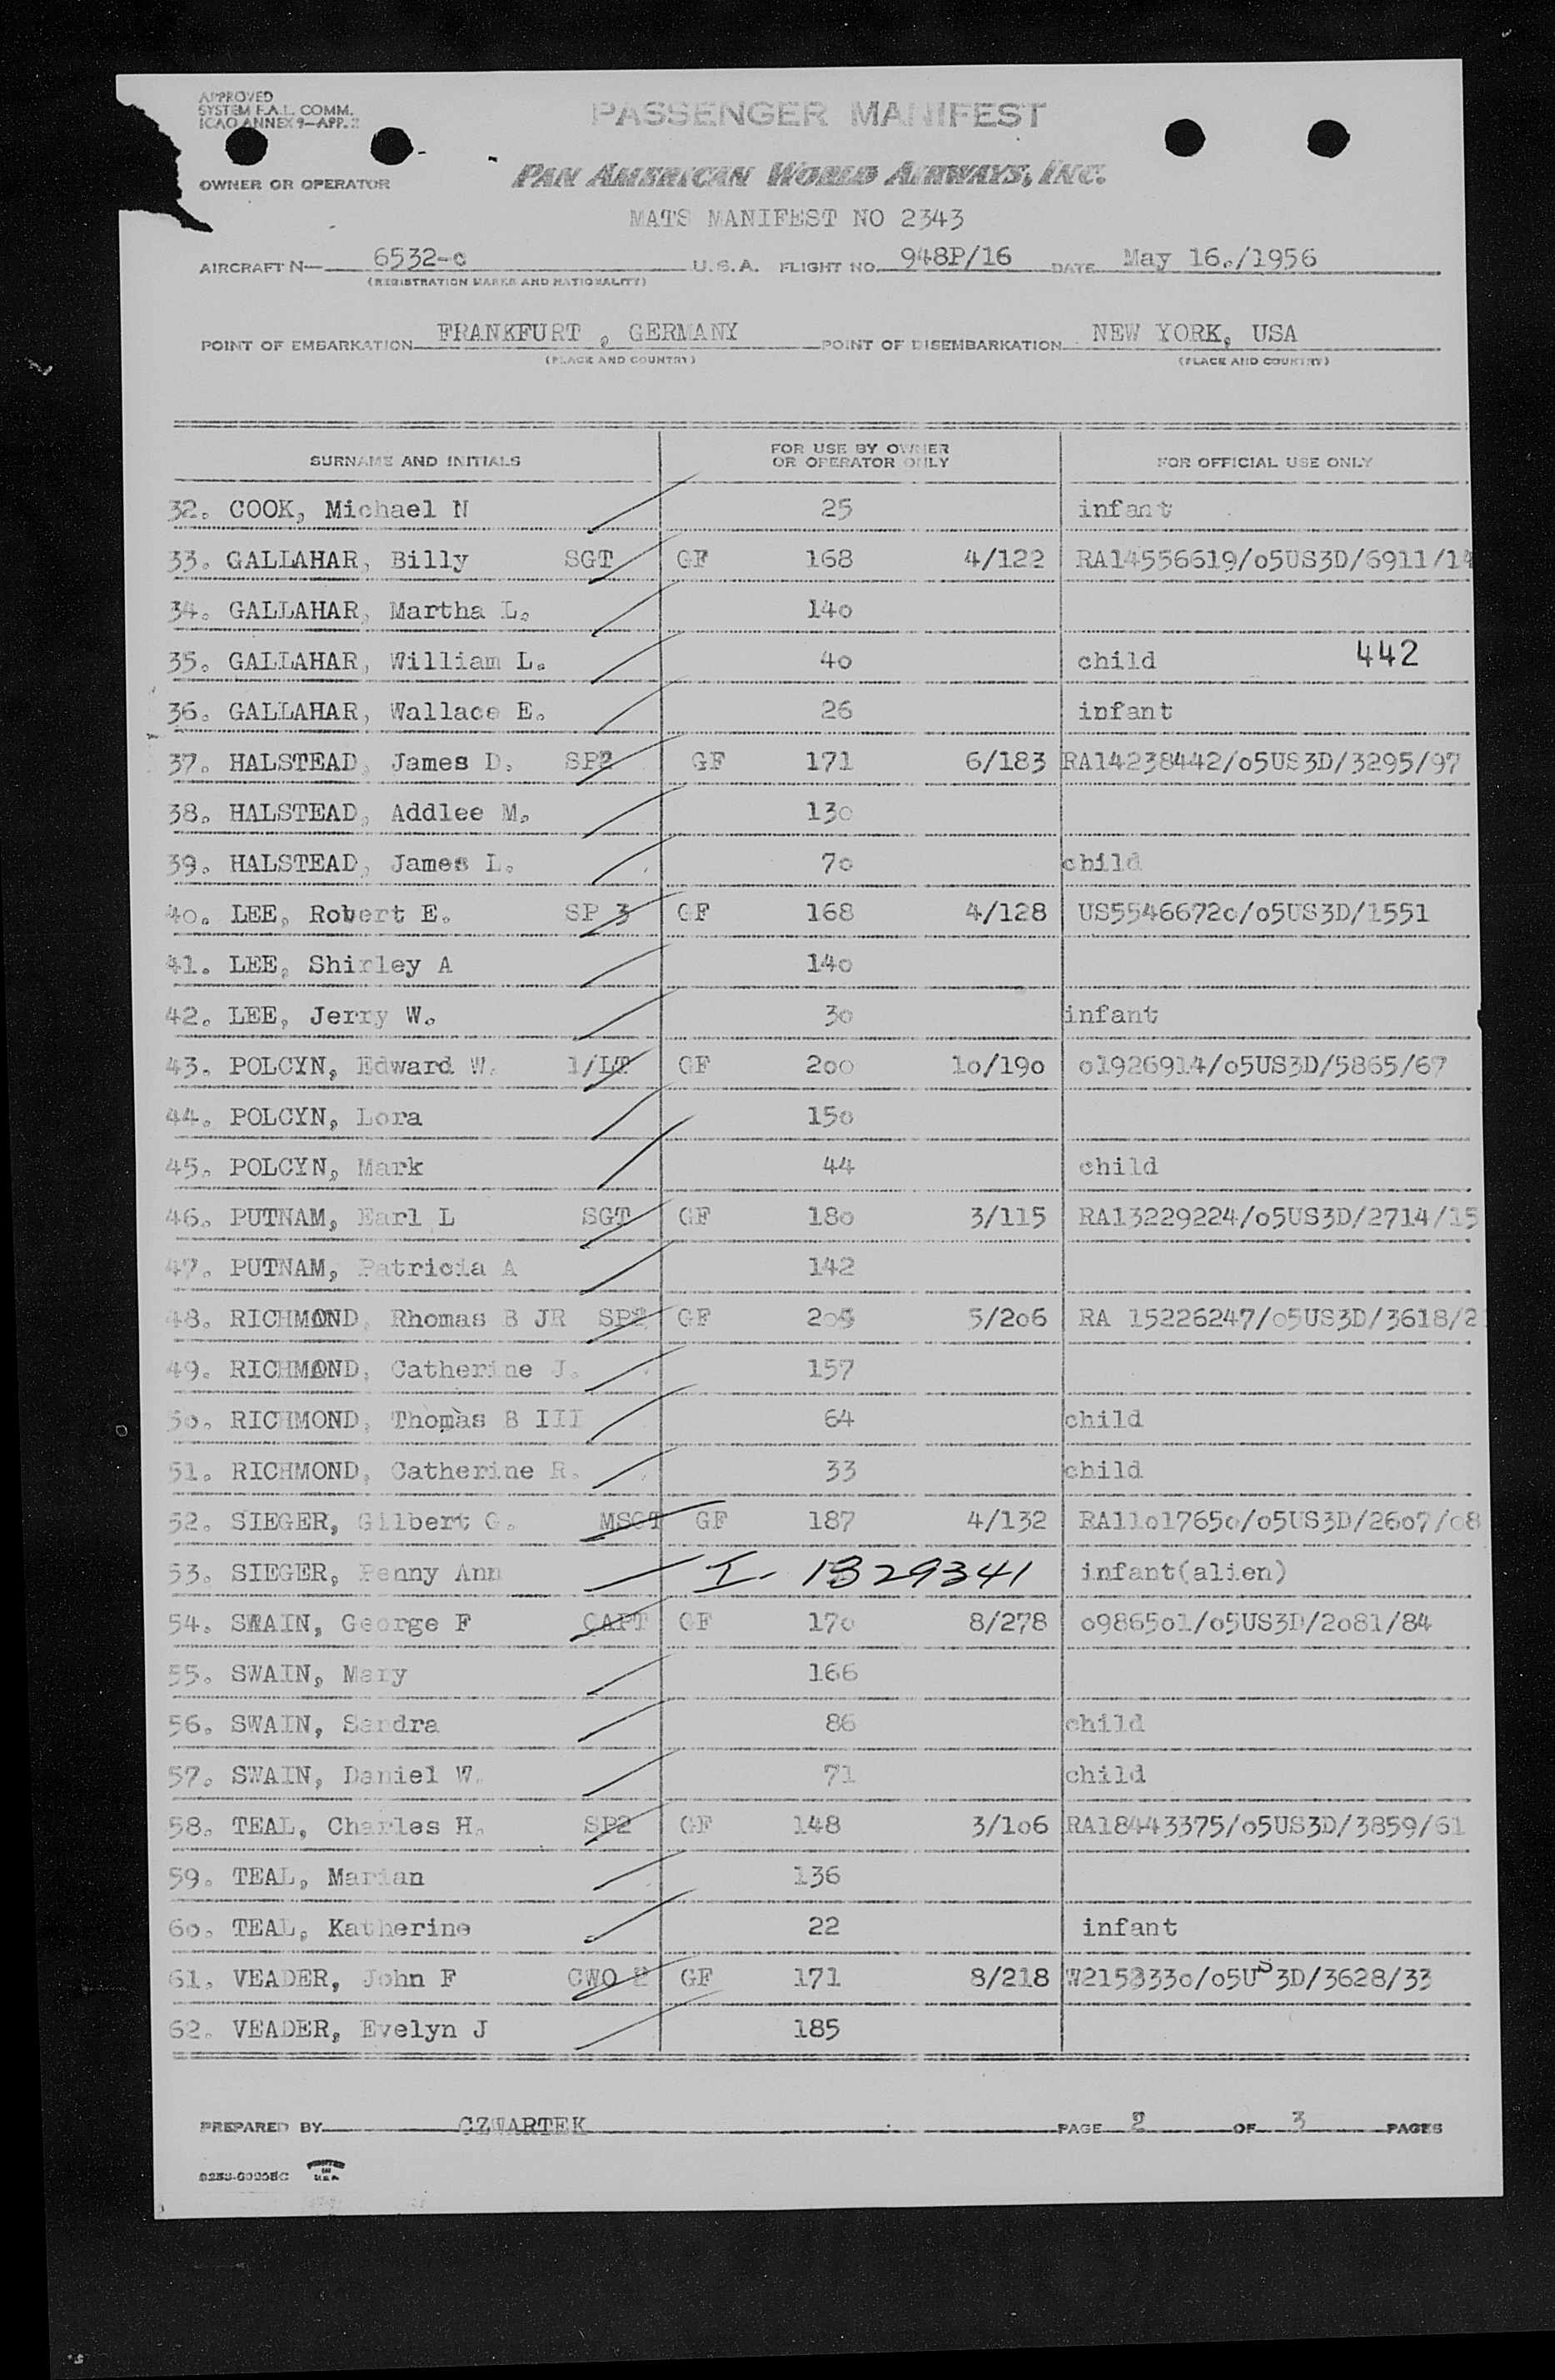 APPROVED
SYSTEM F.A.L. COMM.
ICAO ANNEX 9—APP. 2
PASSENGER MANIFEST
OWNER OR OPERATOR PAN AMERICAN WORLD AIRWAYS, INC.
MATS MANIFEST NO 2343
AIRCRAFT N— 6532-c U.S.A. FLIGHT NO. 948P/16 DATE May 16./1956
(REGISTRATION MARKS AND NATIONALITY)
POINT OF EMBARKATION FRANKFURT , GERMANY POINT OF DISEMBARKATION NEW YORK, USA
(PLACE AND COUNTRY) (PLACE AND COUNTRY)
SURNAME AND INITIALS FOR USE BY OWNER OR OPERATOR ONLY FOR OFFICIAL USE ONLY
32. COOK, Michael N 25 infant
33. GALLAHAR, Billy SGT GF 168 4/122 RA14556619/o5US3D/6911/14
34. GALLAHAR, Martha L. 14o
35. GALLAHAR, William L. 4o child 442
36. GALLAHAR, Wallace E. 26 infant
37. HALSTEAD, James D. SP2 GF 171 6/183 RA14238442/o5US3D/3295/97
38. HALSTEAD, Addlee M. 13o
39. HALSTEAD, James L. 7o child
4o. LEE, Robert E. SP 3 GF 168 4/128 US5546672o/o5US3D/1551
41. LEE, Shirley A 14o
42. LEE, Jerry W. 3o infant
43. POLCYN, Edward W. 1/LT GF 2oo 1o/19o o1926914/o5US3D/5865/67
44. POLCYN, Lora 15o
45. POLCYN, Mark 44 child
46. PUTNAM, Earl L SGT GF 18o 3/115 RA13229224/o5US3D/2714/15
47. PUTNAM, Patricia A 142
48. RICHMOND, Rhomas B JR SP2 GF 2o5 5/2o6 RA 15226247/o5US3D/3618/2
49. RICHMOND, Catherine J. 157
5o. RICHMOND, Thomas B III 64 child
51. RICHMOND, Catherine R. 33 child
52. SIEGER, Gilbert G. MSGT GF 187 4/132 RA11o1765o/o5US3D/26o7/o8
53. SIEGER, Penny Ann I- 1329341 infant(alien)
54. SWAIN, George F CAPT GF 17o 8/278 o9865o1/o5US3D/2o81/84
55. SWAIN, Mary 166
56. SWAIN, Sandra 86 child
57. SWAIN, Daniel W. 71 child
58. TEAL, Charles H. SP2 GF 148 3/1o6 RA18443375/o5US3D/3859/61
59. TEAL, Marian 136
6o. TEAL, Katherine 22 infant
61. VEADER, John F CWO GF 171 8/218 W215333o/o5US3D/3628/33
62. VEADER, Evelyn J 185
PREPARED BY CZWARTEK PAGE 2 OF 3 PAGES
PRINTED IN U.S.A.